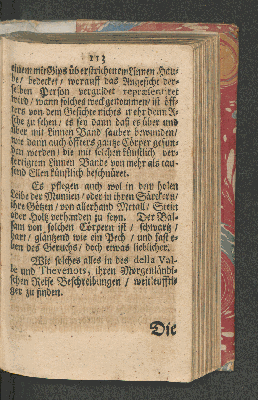 113
einem mit Gips überstrichenen Linnen Hau-
be / bedecket / worauff das Angesicht der-
selben Person vergüldet repræsentiret
wird / wann solches weck genommen / ist öff-
ters von dem Gesichte nichts mehr denn A-
sche zu sehen / es sey dann daß es über und
über mit Linnen Band sauber bewunden /
wie dann auch öffters gantze Cörper gefun-
den werden / die mit solchen künstlich ver-
fertigtem Linnen Bande von mehr als tau-
send Ellen künstlich beschnüret.
Es pflegen auch wol in den holen
Leibe der Mumien / oder in ihren Särckern /
ihre Götzen / von allerhand Metall / Stein
oder Holtz vorhanden zu seyn. Der Bal-
sam von solchen Cörpern ist / schwartz /
hart / gläntzend wie ein Pech / und fast e-
ven des Geruchs / doch etwas lieblicher.
Wie solches alles in des della Val-
le und Thevenots, ihren Morgenländi-
schen Reise Beschreibungen / weitleufti-
ger zu finden.
Die